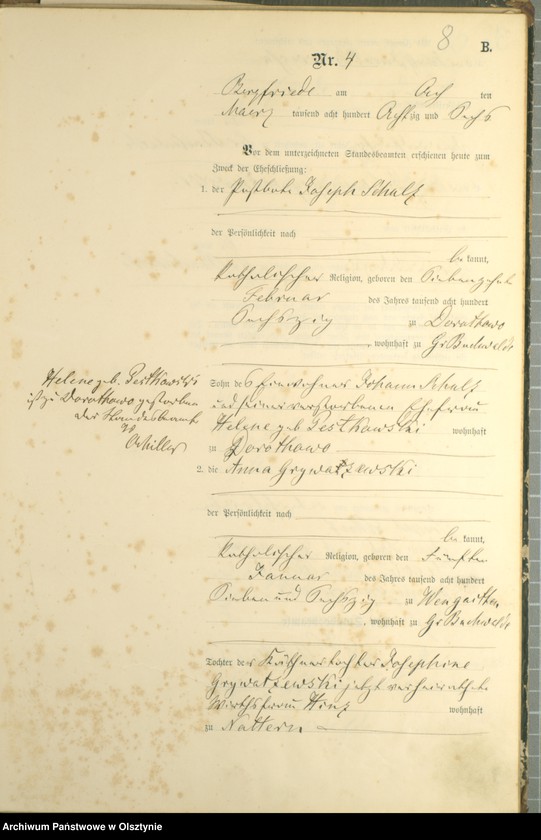 8
B.
Nr. 4
Bergfriede am Acht ten
Maerz tausend acht hundert Achtzig und Sechs
Vor dem unterzeichneten Standesbeamten erschienen heute zum
Zweck der Eheschließung:
1. der Postbote Joseph Schulz
der Persönlichkeit nach
be kannt,
katholischer Religion, geboren den Siebenzehnten
Februar des Jahres tausend acht hundert
Sechszig zu Dorothowo
, wohnhaft zu Gr Buchwalde
Sohn des Einwohners Johann Schulz
und seiner verstorbenen Ehefrau
Helene geb Pestkowski wohnhaft
zu Dorothowo
Helene geb. Pestkowski
ist zu Dorothowo gestorben
Der Standesbeamte
Müller
2. die Anna Grywatzewski
der Persönlichkeit nach
be kannt,
katholischer Religion, geboren den fünften
Januar des Jahres tausend acht hundert
Sieben und Sechszig zu Wengaitten
, wohnhaft zu Gr Buchwalde
Tochter der Käthnertochter Josephine
Grywatzewski jetzt verheirathete
Wirthsfrau Hinz wohnhaft
zu Nattern
Archiwum Państwowe w Olsztynie